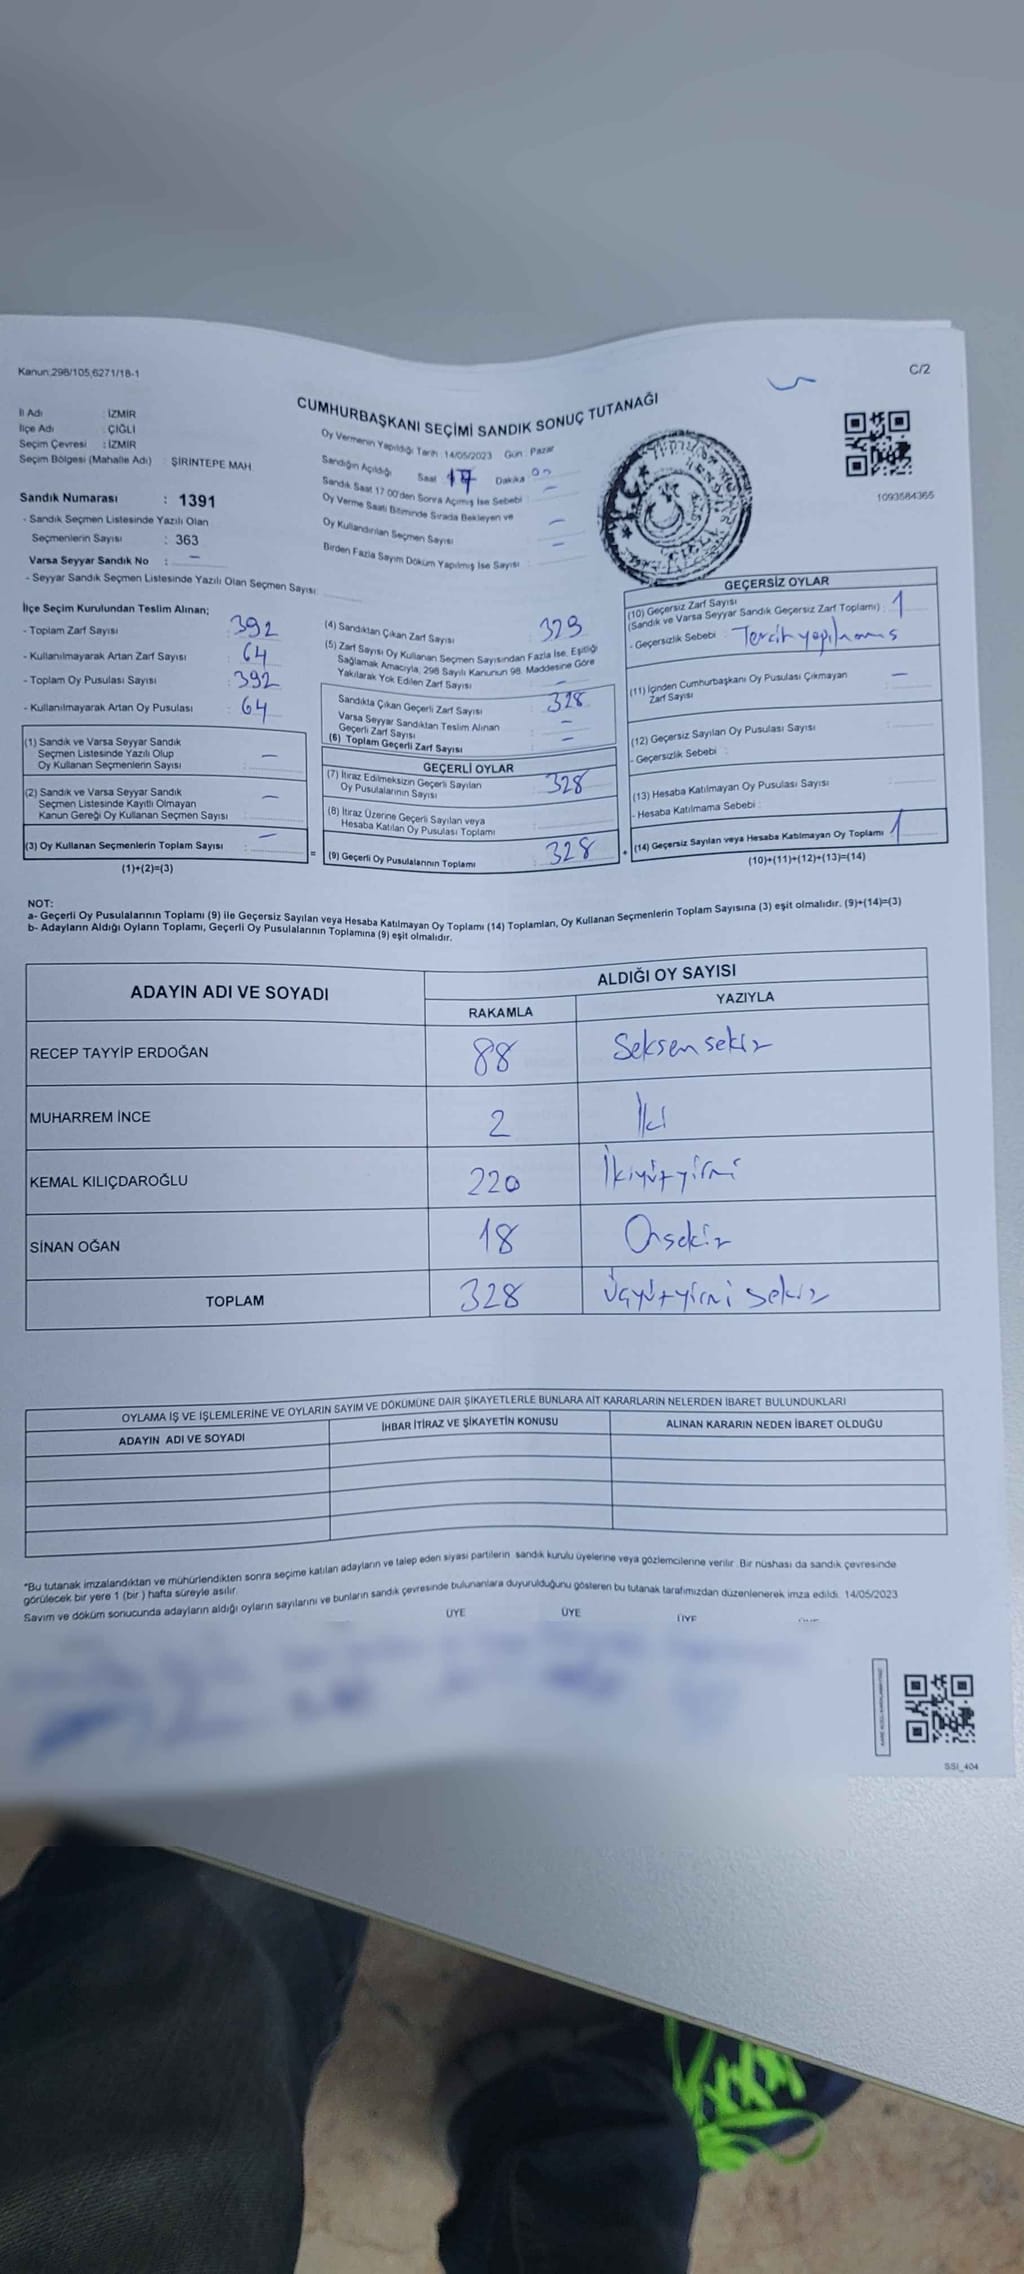 Kanun:298/105,6271/18-1
C/2
CUMHURBAŞKANI SEÇİMİ SANDIK SONUÇ TUTANAĞI
İl Adı : İZMİR
İlçe Adı : ÇİĞLİ
Seçim Çevresi : İZMİR
Seçim Bölgesi (Mahalle Adı) : ŞİRİNTEPE MAH.
Sandık Numarası : 1391
- Sandık Seçmen Listesinde Yazılı Olan
Seçmenlerin Sayısı : 363
Varsa Seyyar Sandık No : –
- Seyyar Sandık Seçmen Listesinde Yazılı Olan Seçmen Sayısı:
Oy Vermenin Yapıldığı Tarih: 14/05/2023 Gün : Pazar
Sandığın Açıldığı Saat : 17 Dakika : 00
Sandık Saat 17.00'den Sonra Açılmış İse Sebebi : –
Oy Verme Saati Bitiminde Sırada Bekleyen ve
Oy Kullandırılan Seçmen Sayısı : –
Birden Fazla Sayım Döküm Yapılmış İse Sayısı : –
1093584365
İlçe Seçim Kurulundan Teslim Alınan;
- Toplam Zarf Sayısı : 392
- Kullanılmayarak Artan Zarf Sayısı : 64
- Toplam Oy Pusulası Sayısı : 392
- Kullanılmayarak Artan Oy Pusulası : 64
(1) Sandık ve Varsa Seyyar Sandık
Seçmen Listesinde Yazılı Olup
Oy Kullanan Seçmenlerin Sayısı : –
(2) Sandık ve Varsa Seyyar Sandık
Seçmen Listesinde Kayıtlı Olmayan
Kanun Gereği Oy Kullanan Seçmen Sayısı : –
(3) Oy Kullanan Seçmenlerin Toplam Sayısı : –
(1)+(2)=(3)
=
(4) Sandıktan Çıkan Zarf Sayısı : 329
(5) Zarf Sayısı Oy Kullanan Seçmen Sayısından Fazla İse, Eşitliği
Sağlamak Amacıyla, 298 Sayılı Kanunun 98. Maddesine Göre
Yakılarak Yok Edilen Zarf Sayısı : –
Sandıkta Çıkan Geçerli Zarf Sayısı : 328
Varsa Seyyar Sandıktan Teslim Alınan
Geçerli Zarf Sayısı : –
(6) Toplam Geçerli Zarf Sayısı : –
GEÇERLİ OYLAR
(7) İtiraz Edilmeksizin Geçerli Sayılan
Oy Pusulalarının Sayısı : 328
(8) İtiraz Üzerine Geçerli Sayılan veya
Hesaba Katılan Oy Pusulası Toplamı :
(9) Geçerli Oy Pusulalarının Toplamı : 328
+
GEÇERSİZ OYLAR
(10) Geçersiz Zarf Sayısı
(Sandık ve Varsa Seyyar Sandık Geçersiz Zarf Toplamı) : 1
- Geçersizlik Sebebi : Tercih yapılmamış
(11) İçinden Cumhurbaşkanı Oy Pusulası Çıkmayan
Zarf Sayısı : –
(12) Geçersiz Sayılan Oy Pusulası Sayısı :
- Geçersizlik Sebebi :
(13) Hesaba Katılmayan Oy Pusulası Sayısı :
- Hesaba Katılmama Sebebi :
(14) Geçersiz Sayılan veya Hesaba Katılmayan Oy Toplamı : 1
(10)+(11)+(12)+(13)=(14)
NOT:
a- Geçerli Oy Pusulalarının Toplamı (9) ile Geçersiz Sayılan veya Hesaba Katılmayan Oy Toplamı (14) Toplamları, Oy Kullanan Seçmenlerin Toplam Sayısına (3) eşit olmalıdır. (9)+(14)=(3)
b- Adayların Aldığı Oyların Toplamı, Geçerli Oy Pusulalarının Toplamına (9) eşit olmalıdır.
ADAYIN ADI VE SOYADI ALDIĞI OY SAYISI
RAKAMLA YAZIYLA
RECEP TAYYİP ERDOĞAN 88 Seksen sekiz
MUHARREM İNCE 2 İki
KEMAL KILIÇDAROĞLU 220 İkiyüzyirmi
SİNAN OĞAN 18 Onsekiz
TOPLAM 328 Üçyüzyirmi sekiz
OYLAMA İŞ VE İŞLEMLERİNE VE OYLARIN SAYIM VE DÖKÜMÜNE DAİR ŞİKAYETLERLE BUNLARA AİT KARARLARIN NELERDEN İBARET BULUNDUKLARI
ADAYIN ADI VE SOYADI İHBAR İTİRAZ VE ŞİKAYETİN KONUSU ALINAN KARARIN NEDEN İBARET OLDUĞU
*Bu tutanak imzalandıktan ve mühürlendikten sonra seçime katılan adayların ve talep eden siyasi partilerin sandık kurulu üyelerine veya gözlemcilerine verilir. Bir nüshası da sandık çevresinde
görülecek bir yere 1 (bir ) hafta süreyle asılır.
Sayım ve döküm sonucunda adayların aldığı oyların sayılarını ve bunların sandık çevresinde bulunanlara duyurulduğunu gösteren bu tutanak tarafımızdan düzenlenerek imza edildi. 14/05/2023
ÜYE ÜYE ÜYE
SSI_404